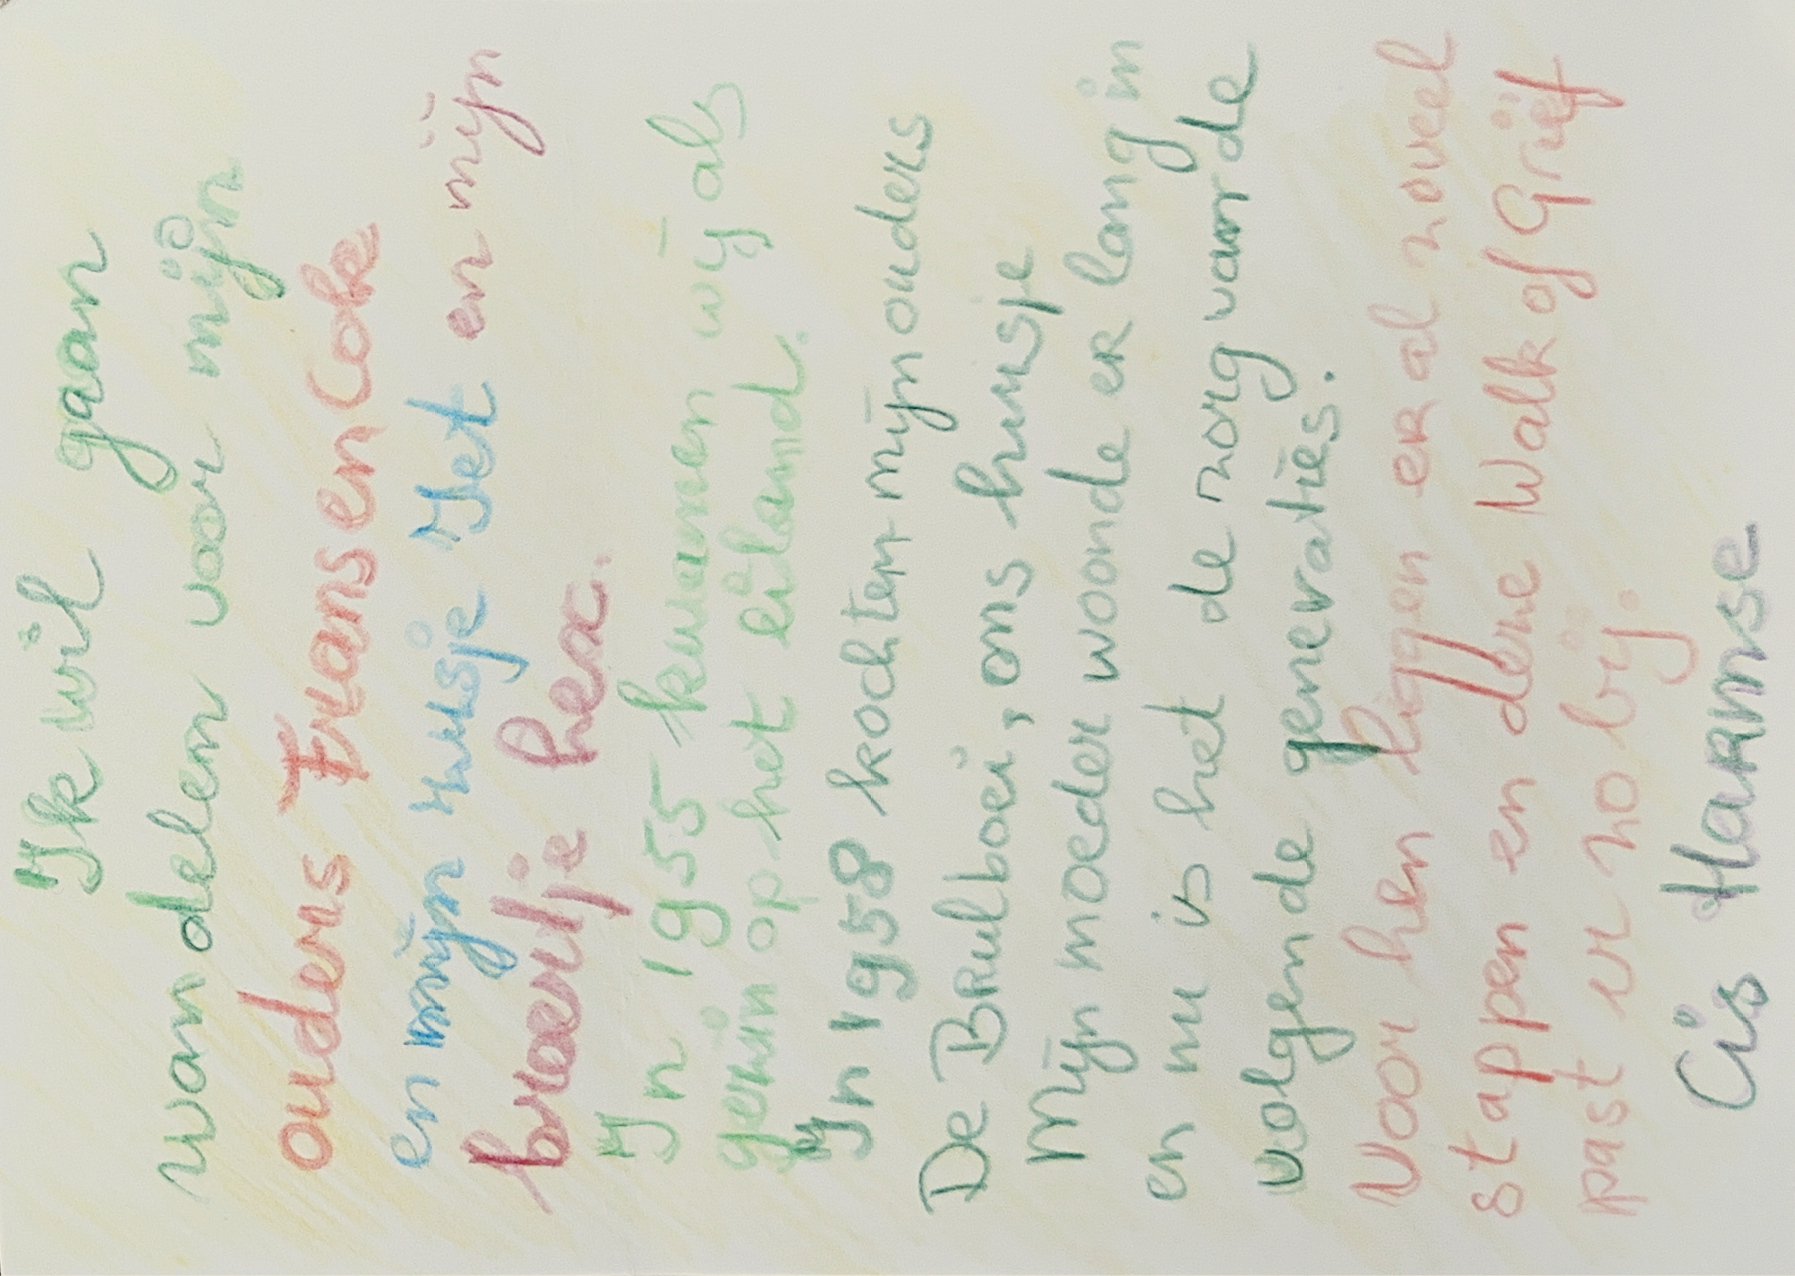 Ik wil gaan
wandelen voor mijn
ouders Frans en Cok
en mijn zusje Jet en mijn
broertje hex.
In 1955 kwamen wij als
gezin op het eiland.
In 1958 kochten mijn ouders
De Brulboei, ons huisje
Mijn moeder woonde er lang in
en nu is het de zorg van de
volgende generaties.
Voor hen liggen er al zoveel
stappen en deze Walk of Grief
past er zo bij.
Cis Harmse